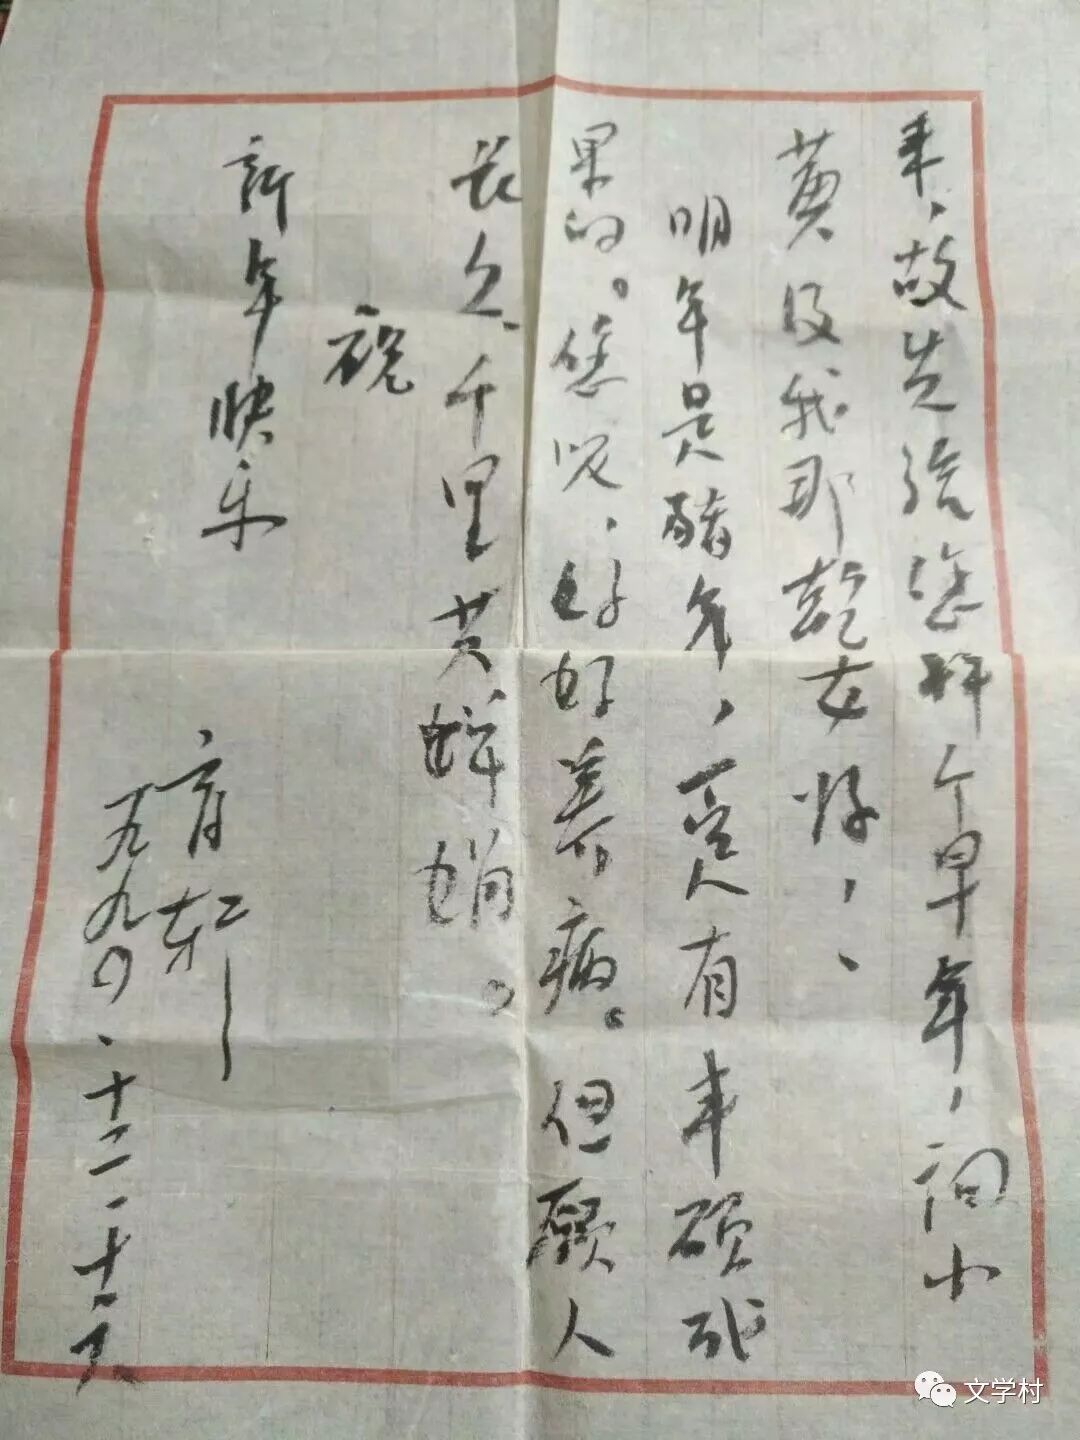 来、故先给您拜个早年，问小
黄及我那乾女好，、
明年是猪年，人有丰硕成
果的。您呢，好好养病。但愿人
长久、千里共婵娟。
祝
新年快乐
育轩
一九九〇、十二、十六
文学村